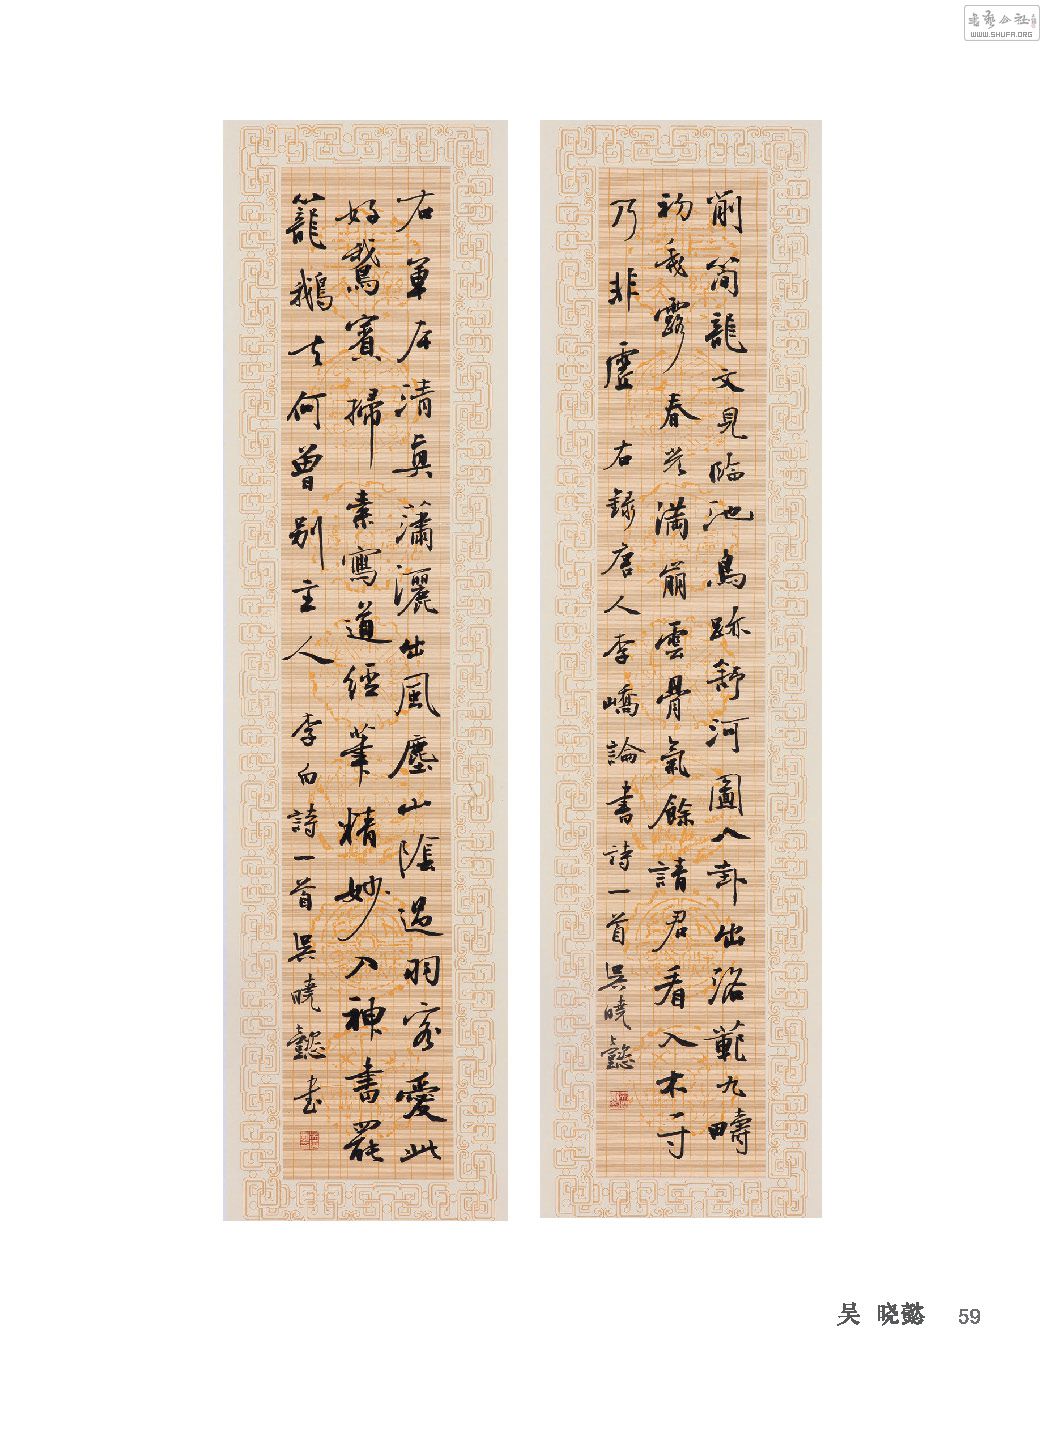 書藝公社
WWW.SHUFA.ORG
削簡龍文見臨池鳥跡舒河圖八卦出洛範九疇
初垂露春光滿崩雲骨氣餘請君看入木一寸
乃非虛 右錄唐人李嶠論書詩一首 吳曉懿
右軍本清真瀟灑出風塵山陰過羽客愛此
好鵞賓掃素寫道經筆精妙入神書罷
籠鵝去何曾別主人 李白詩一首 吳曉懿書
吴 晓懿 59